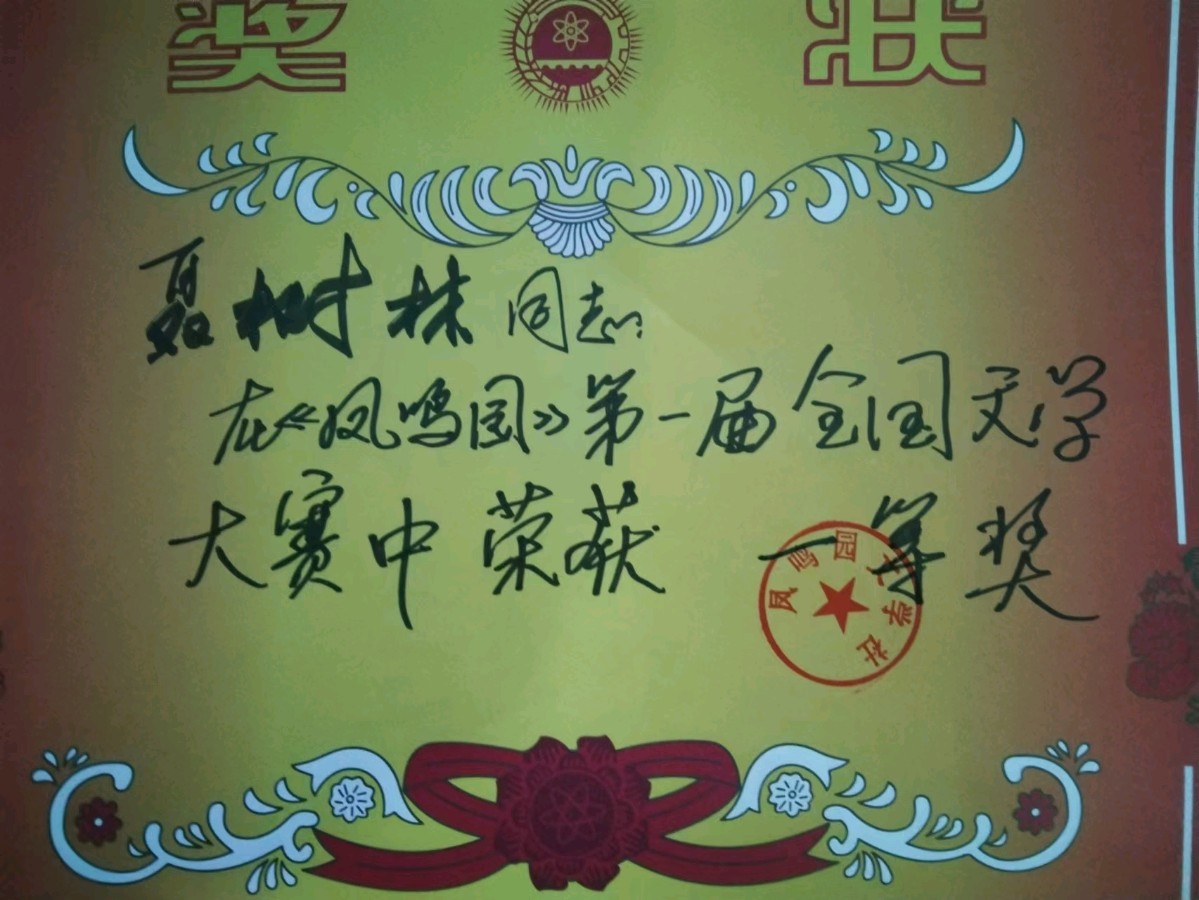 奖 状
聂树林同志:
在《凤鸣园》第一届全国文学
大赛中荣获 一等奖
凤鸣园文学社